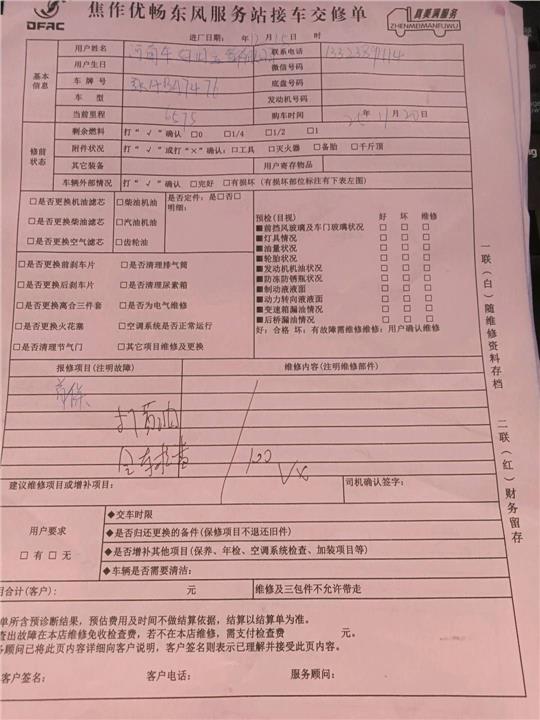 DFAC 焦作优畅东风服务站接车交修单 真美满服务
ZHENMEIMANFUWU
进厂日期: 年12月15日 时
基本信息
用户姓名 联系电话
用户生日 微信号码
车牌号 底盘号码
车型 发动机号码
当前里程 6575 购车时间 年11月20日
修前状态
剩余燃料 打“√”确认 □0 □1/4 □1/2 □1
附件状况 打“√”或打“×”确认:□工具 □灭火器 □备胎 □千斤顶
其它装备 用户寄存物品
车辆外部情况 打“√”确认 □完好 □有损坏(有损坏部位标注有下表左图)
□是否更换机油滤芯 □柴油机油 是否定件:是□否□
明细:
□是否更换柴油滤芯 □汽油机油
□是否更换空气滤芯 □齿轮油
□是否更换前刹车片 □是否清理排气筒
□是否更换后刹车片 □是否清理尿素箱
□是否更换离合三件套 □是否为电气维修
□是否更换火花塞 □空调系统是否正常运行
□是否清理节气门 □其它项目维修及更换
预检(目视) 好 坏 维修
■前挡风玻璃及车门玻璃状况 □ □ □
■灯具情况 □ □ □
■油量状况 □ □ □
■轮胎状况 □ □ □
■发动机机油状况 □ □ □
■防冻防锈瓶状况 □ □ □
■制动液液面 □ □ □
■动力转向液液面 □ □ □
■变速箱漏油情况 □ □ □
■后桥漏油情况 □ □ □
好:合格 坏:有故障需维修维修:用户确认维修
报修项目(注明故障) 维修内容(注明维修部件)
首保
打黄油
全车检查 100
建议维修项目或增补项目: 司机确认签字:
用户要求
□有 □无
◆交车时限
◆是否归还更换的备件(保修项目不退还旧件)
◆是否增补其他项目(保养、年检、空调系统检查、加装项目等)
◆车辆是否需要清洁:
用合计(客户): 元 维修及三包件不允许带走
单所含预诊断结果,预估费用及时间不做结算依据,结算以结算单为准。
查出故障在本店维修免收检查费,若不在本店维修,需支付检查费 元。
务顾问已将此页内容详细向客户说明,客户签名则表示已理解并接受此页内容。
客户签名: 客户电话: 服务顾问:
一联(白)随维修资料存档
二联(红)财务留存